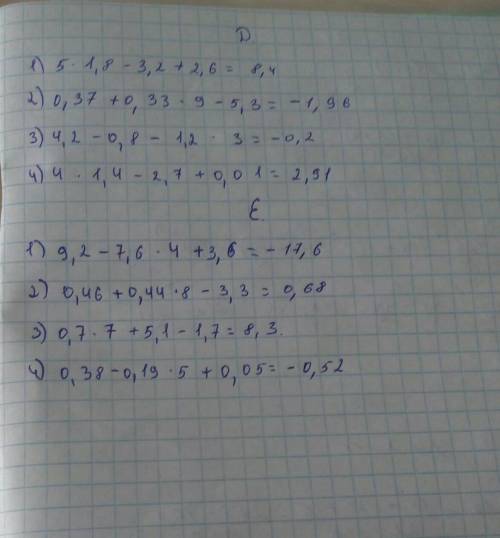 D
1) 5 · 1,8 - 3,2 + 2,6 = 8,4
2) 0,37 + 0,33 · 9 - 5,3 = -1,96
3) 4,2 - 0,8 - 1,2 · 3 = -0,2
4) 4 · 1,4 - 2,7 + 0,01 = 2,91
E.
1) 9,2 - 7,6 · 4 + 3,6 = -17,6
2) 0,46 + 0,44 · 8 - 3,3 = 0,68
3) 0,7 · 7 + 5,1 - 1,7 = 8,3.
4) 0,38 - 0,19 · 5 + 0,05 = -0,52